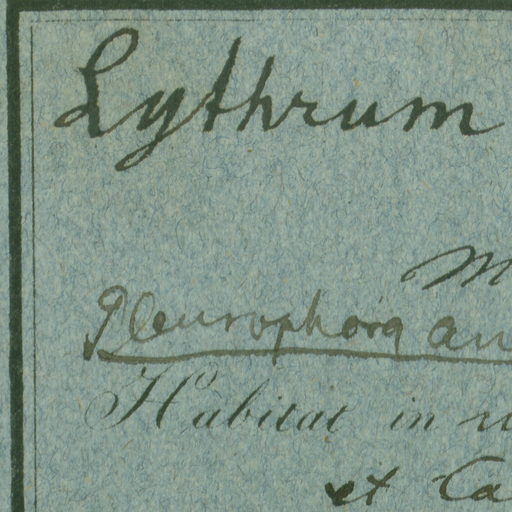 Lythrum
M
Pleurophora an
Habitat in
et Ca